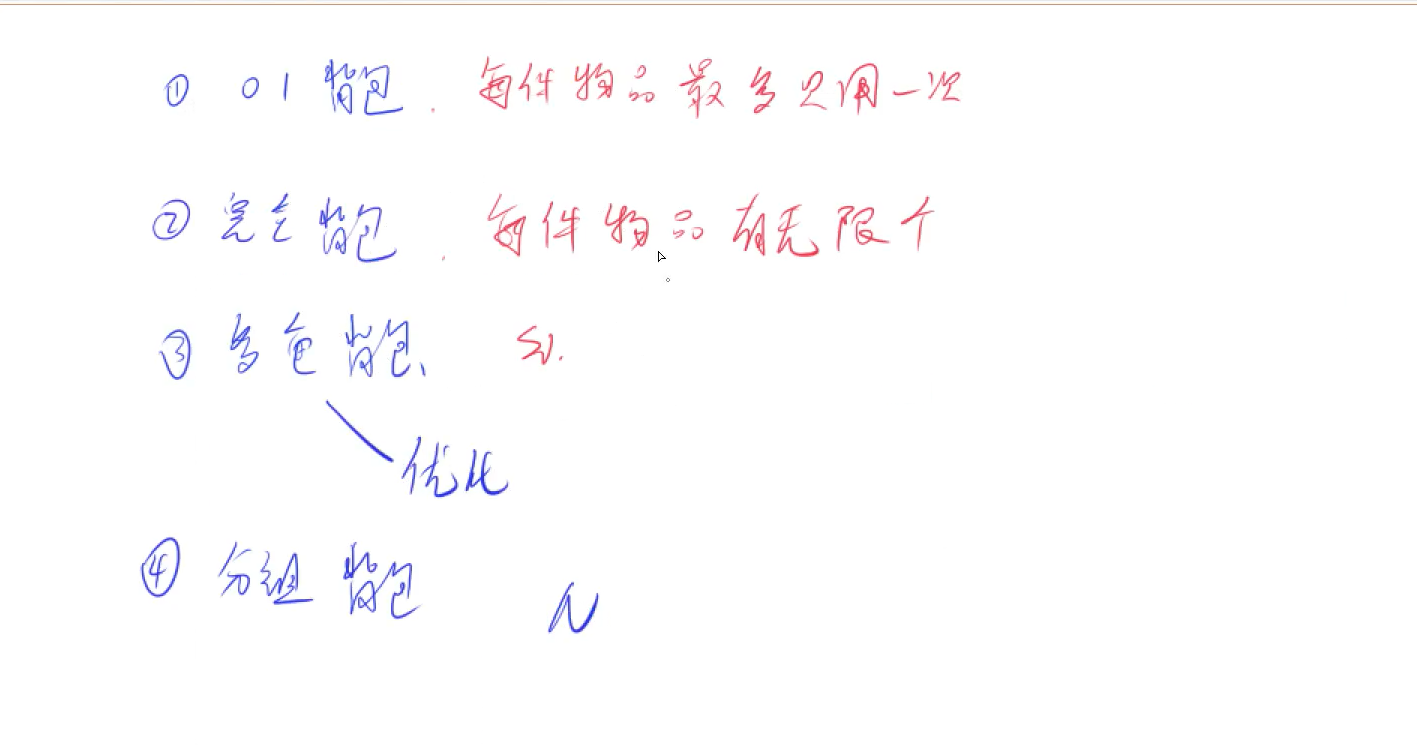 ① 01背包. 每件物品最多只用一次
② 完全背包. 每件物品有无限个
③ 多重背包、 si.
优化
④ 分组背包 N